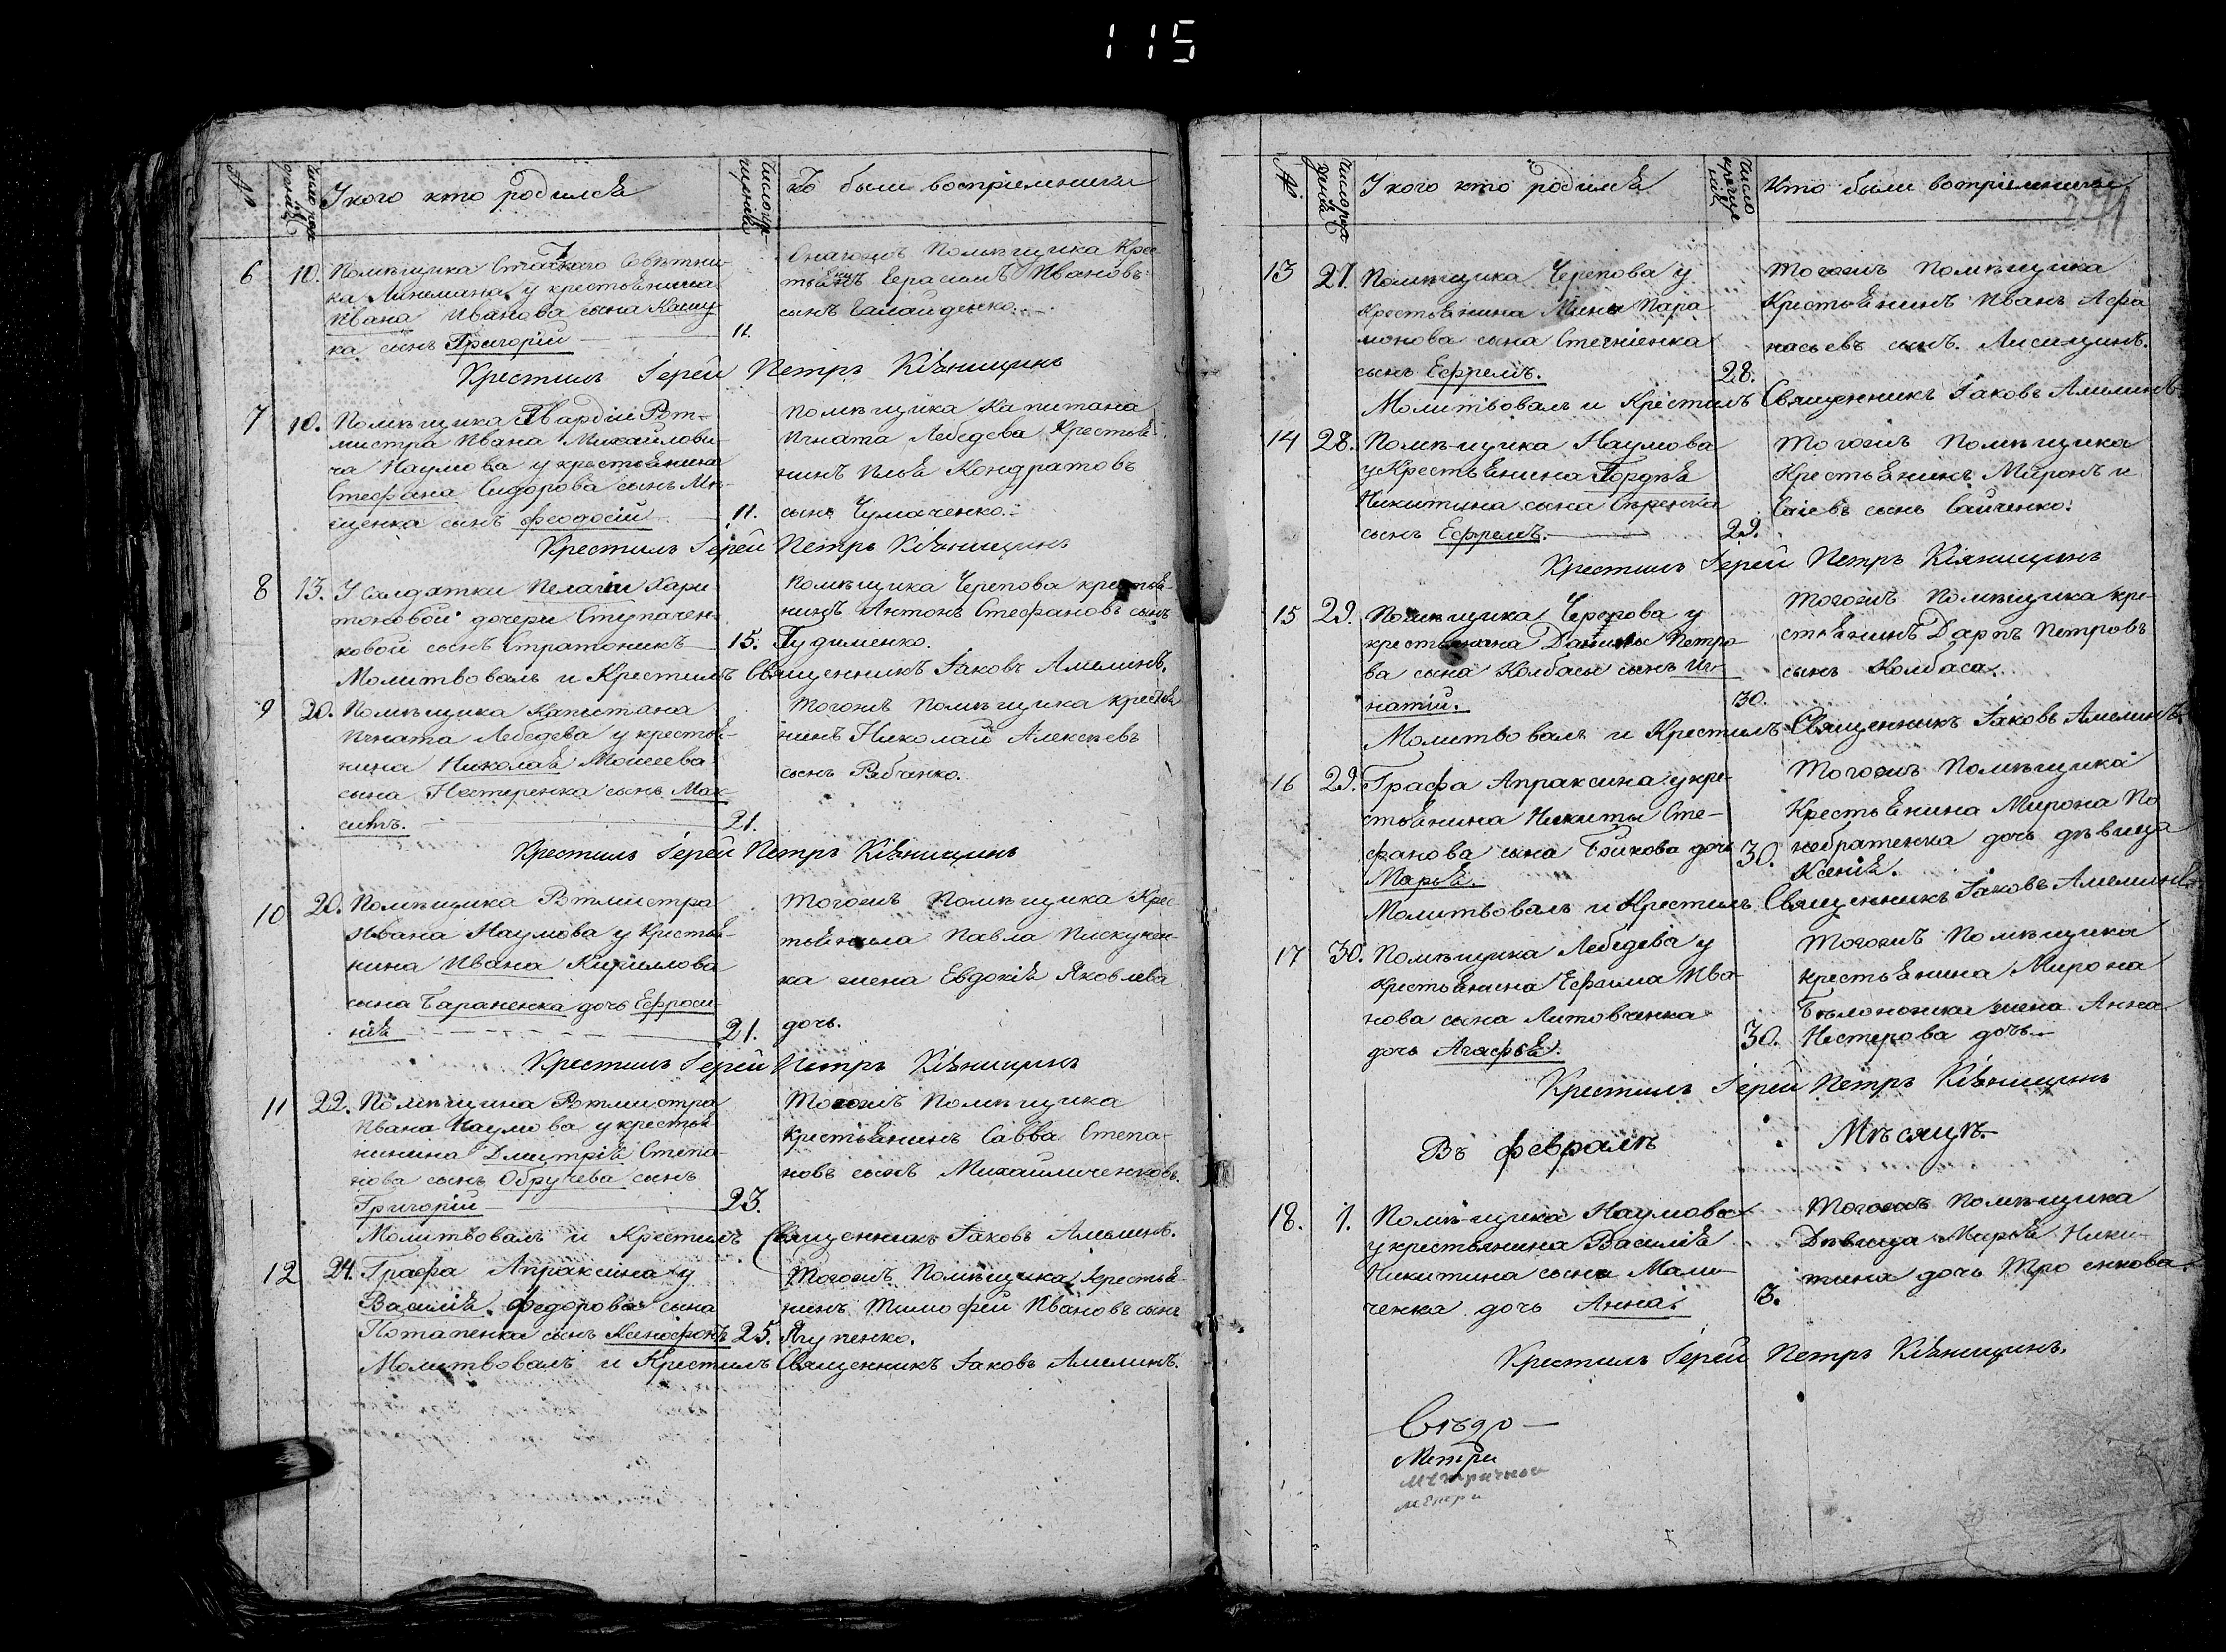 115
№
число рожденія
У кого кто родился
число крещенія
кто были воспріемники
6 10. Помѣщика Статского Совѣтни-
ка Линемана у крестьянина
Ивана Иванова сына Кашу-
ка сынъ Григорій 11.
Онагожъ Помѣщика Крес-
тьянинъ Герасимъ Ивановъ
сынъ Галайденко.
Крестилъ Іерей Петръ Кіяницинъ
7 10. Помѣщика Гвардіи Рот-
мистра Ивана Михайлови-
ча Наумова у крестьянина
Стефана Сидорова сынъ Ми-
щенка сынъ Феодосій 11.
Помѣщика Капитана
Игната Лебедева Крестья-
нинъ Илья Кондратовъ
сынъ Чумаченко.
Крестилъ Іерей Петръ Кіяницинъ
8 13. У Солдатки Пелагіи Хари-
тоновой дочери Ступачен-
ковой сынъ Стратоникъ 15.
Помѣщика Черепова крестья-
нинъ Антонъ Стефановъ сынъ
Гудименко.
Молитвовалъ и Крестилъ Священникъ Іаковъ Амелинъ.
9 20. Помѣщика Капитана
Игната Лебедева у крестья-
нина Николая Моисеева
сына Нестеренка сынъ Мак-
симъ. 21.
Тогожъ Помѣщика крестья
нинъ Николай Алексѣевъ
сынъ Рябченко.
Крестилъ Іерей Петръ Кіяницинъ
10 20. Помѣщика Ротмистра
Ивана Наумова у Крестья-
нина Ивана Кириллова
сына Бараненка дочь Ефроси-
нія 21.
Тогожъ Помѣщика Крес-
тьянина Павла Пискунен-
ка жена Евдокія Яковлева
дочь.
Крестилъ Іерей Петръ Кіяницинъ
11 22. Помѣщика Ротмистра
Ивана Наумова у крестья-
нинина Дмитрія Степа-
нова сынъ Обручева сынъ
Григорій 23.
Тогожъ Помѣщика
Крестьянинъ Савва Степа-
новъ сынъ Михайличенковъ.
Молитвовалъ и Крестилъ Священникъ Іаковъ Амелинъ.
12 24. Графа Апраксина у
Василія Федорова сына
Потапенка сынъ Ксенофонъ 25.
Тогожъ Помѣщика Крестья-
нинъ Тимофей Ивановъ сынъ
Ягупенко.
Молитвовалъ и Крестилъ Священникъ Іаковъ Амелинъ.
№
число рожденія
У кого кто родился
число крещенія
Кто были вотріемники
13 27. Помѣщика Черепова у
Крестьянина Мины Пара
монова сына Стегніенка
сынъ Ефремъ. 28.
Тогожъ Помѣщика
Крестьянинъ Иванъ Афа
насьевъ сынъ Лисицинъ.
Молитвовалъ и Крестилъ Священникъ Іаковъ Амелинъ
14 28. Помѣщика Наумова
у Крестьянина Гордѣя
Никитина сына
сынъ Ефремъ. 29.
Тогожъ Помѣщика
Крестьянинъ Миронъ и
Саіевъ сынъ Сайченко.
Крестилъ Іерей Петръ Кіяницинъ
15 29. Помѣщика Черепова у
крестьянина Данилы Петро-
ва сына Колбасы сынъ Иг-
натій. 30.
Тогожъ Помѣщика кре-
стьянинъ Петровъ
сынъ Колбаса.
Молитвовалъ и Крестилъ Священникъ Іаковъ Амелинъ.
16 29. Графа Апраксина у кре-
стьянина Никиты Сте-
фанова сына Бойкова дочь 30.
Марья.
Тогожъ Помѣщика
Крестьянина Мирона По
необратенка дочь дѣвица
Ксенія.
Молитвовалъ и Крестилъ Священникъ Іаковъ Амелинъ.
17 30. Помѣщика Лебедева у
Крестьянина Ефима Ива-
нова сына Литовченка
дочь Агафья. 30.
Тогожъ Помѣщика
крестьянина Мирона
Бѣлоножка жена Анна
Нестерова дочь.
Крестилъ Іерей Петръ Кіяницинъ
Въ февралѣ Мѣсяцѣ.
18. 1. Помѣщика Наумова
у крестьянина Василія
Никитина сына Мали-
ченка дочь Анна. 3.
Тогожъ Помѣщика
Дѣвица Марія Ники-
тина дочь Тро енкова.
Крестилъ Іерей Петръ Кіяницинъ.
Метри
Метричной
Метри